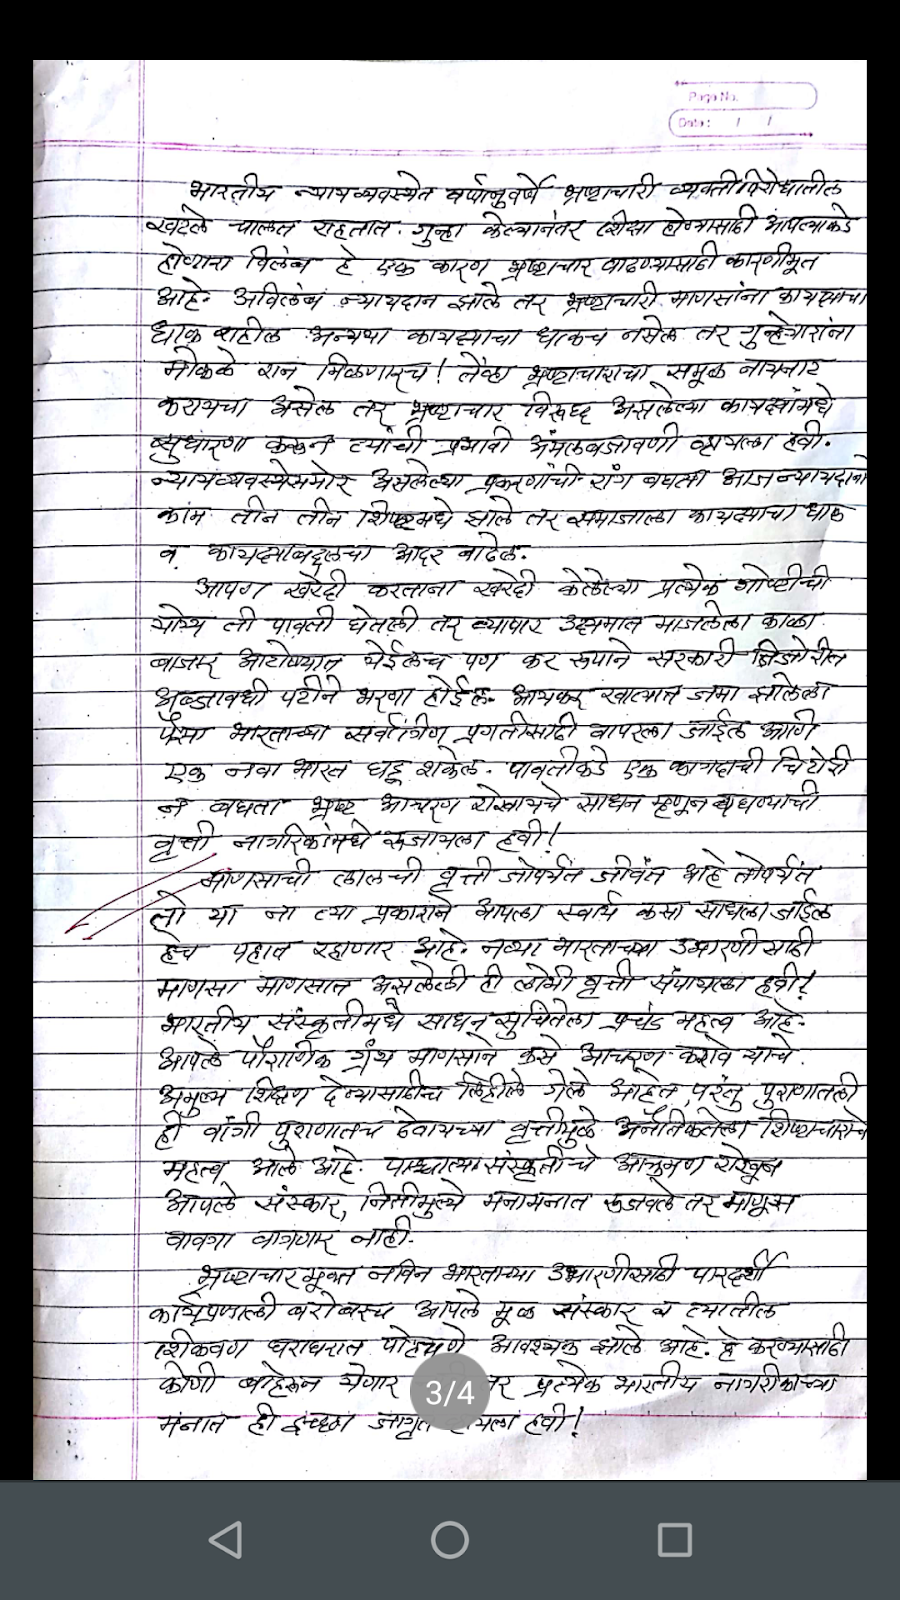 Page No.
Date: / /
भारतीय न्यायव्यवस्थेत वर्षानुवर्षे भ्रष्टाचारी व्यक्तीविरोधातील
खटले चालत राहतात. गुन्हा केल्यानंतर शिक्षा होण्यासाठी आपल्याकडे
होणारा विलंब हे एक कारण भ्रष्टाचार वाढण्यासाठी कारणीभूत
आहे. अविलंब न्यायदान झाले तर भ्रष्टाचारी माणसांना कायद्याचा
धाक राहील अन्यथा कायद्याचा धाकच नसेल तर गुन्हेगारांना
मोकळे रान मिळणारच! तेंव्हा भ्रष्टाचाराचा समूळ नायनाट
करायचा असेल तर भ्रष्टाचार विरुद्ध असलेल्या कायद्यांमधे
सुधारणा करून त्यांची प्रभावी अंमलबजावणी व्हायला हवी.
न्यायव्यवस्थेसमोर असलेल्या प्रकरणांची रांग बघता आज न्यायदानाचे
काम तीन तीन शिफ्टमधे झाले तर समाजाला कायद्याचा धाक
व कायद्याबद्दलचा आदर वाढेल.
आपण खरेदी करताना खरेदी केलेल्या प्रत्येक गोष्टीची
योग्य ती पावती घेतली तर व्यापार उद्यमात माजलेला काळा
बाजार आटोक्यात येईलच पण कर रुपाने सरकारी तिजोरीत
अब्जावधी पटीने भरणा होईल. आयकर खात्यात जमा झालेला
पैसा भारताच्या सर्वांगीण प्रगतीसाठी वापरला जाईल आणि
एक नवा भारत घडू शकेल. पावतीकडे एक कागदाची चिटोरी
न बघता भ्रष्ट आचरण रोखायचे साधन म्हणून बघण्याची
वृत्ती नागरिकांमधे रुजायला हवी!
माणसाची लालची वृत्ती जोपर्यंत जीवंत आहे तोपर्यंत
तो या ना त्या प्रकाराने आपला स्वार्थ कसा साधला जाईल
हेच पहात रहाणार आहे. नव्या भारताच्या उभारणीसाठी
माणसा माणसात असलेली ही लोभी वृत्ती संपायला हवी!
भारतीय संस्कृतीमधे साधन सुचितेला प्रचंड महत्व आहे.
आपले पौराणिक ग्रंथ माणसाने कसे आचरण करावे याचे
अमुल्य शिक्षण देण्यासाठीच लिहीले गेले आहेत, परंतु पुराणातली
ही वांगी पुराणातच ठेवायच्या वृत्तीमुळे अनैतिकतेला शिष्टाचाराचे
महत्व आले आहे. पाश्चात्या संस्कृतीचे आक्रमण रोखून
आपले संस्कार, नितीमुल्ये मनामनात रुजवले तर माणूस
वावगा वागणार नाही.
भ्रष्टाचार मूक्त नविन भारताच्या उभारणीसाठी पारदर्शी
कार्यप्रणाली बरोबरच आपले मूळ संस्कार व त्यातील
शिकवण घराघरात पोहचणे आवश्यक झाले आहे. हे करण्यासाठी
कोणी बाहेरून येणार तर प्रत्येक भारतीय नागरीकाच्या
मनात ही इच्छा जागृत व्हायला हवी!
3/4